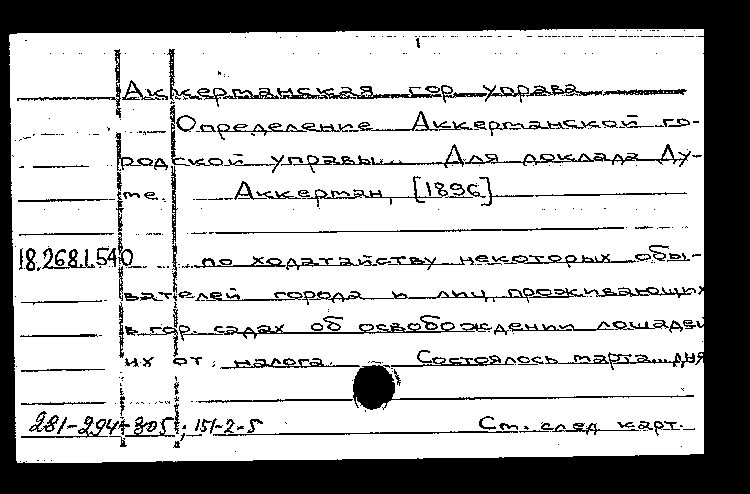 Аккерманская гор управа
Определение Аккерманской го-
родской управы... Для доклада Ду-
ме. Аккерман, [1896]
18.268.1.540 ...по ходатайству некоторых обы-
вателей города и лиц, проживающих
в гор. садах об освобождении лошадей
их от налога. Состоялось марта...дня
281-294-305; 151-2-5 См. след карт.